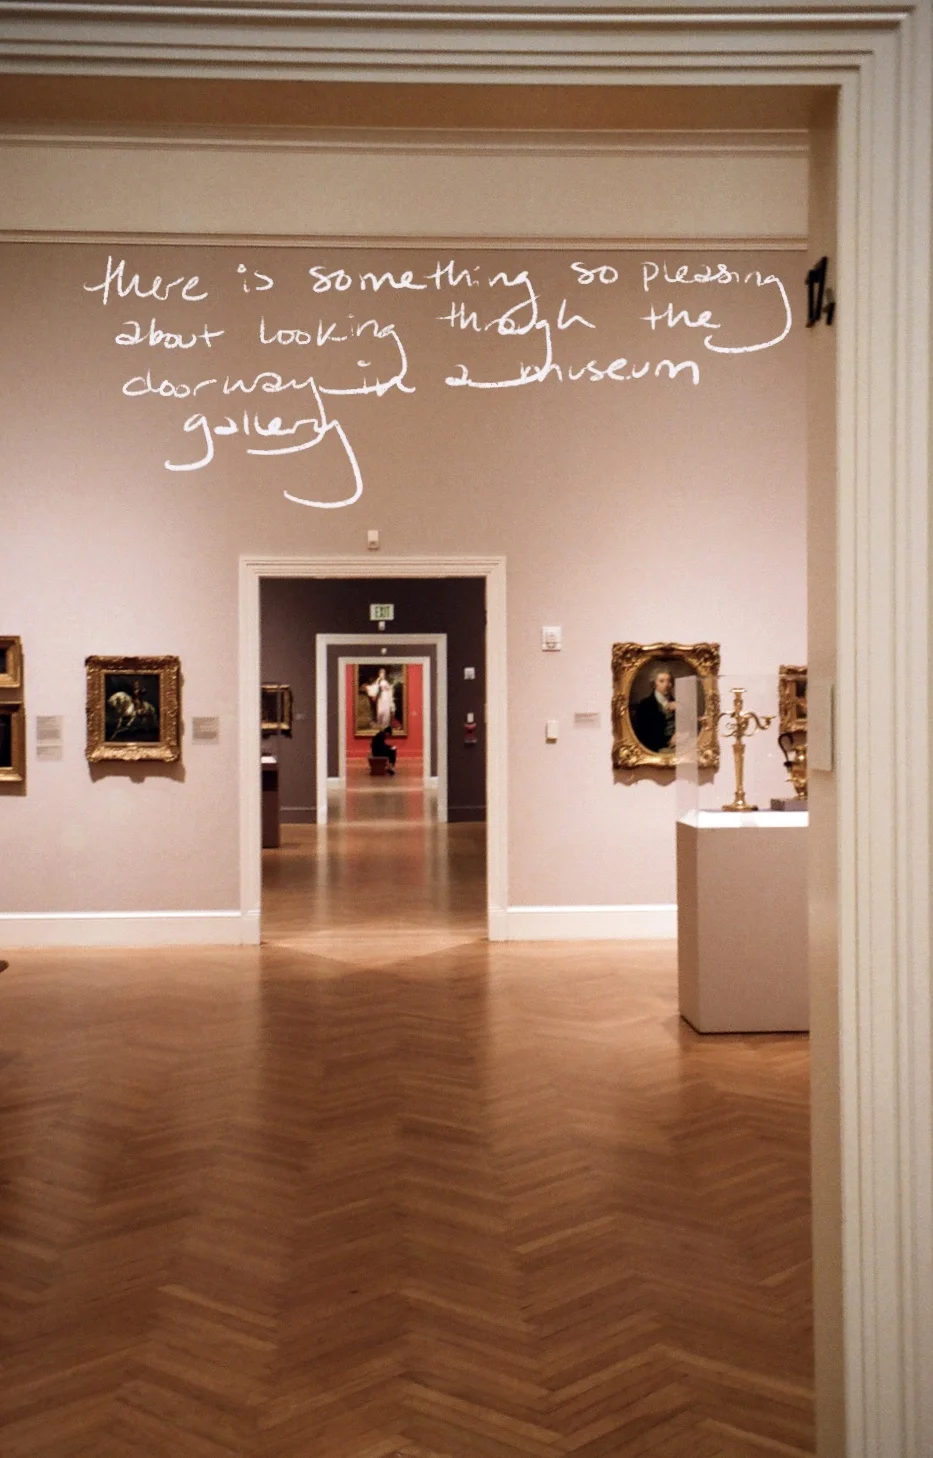 there is something so pleasing
about looking through the
doorway in a museum
gallery
EXIT